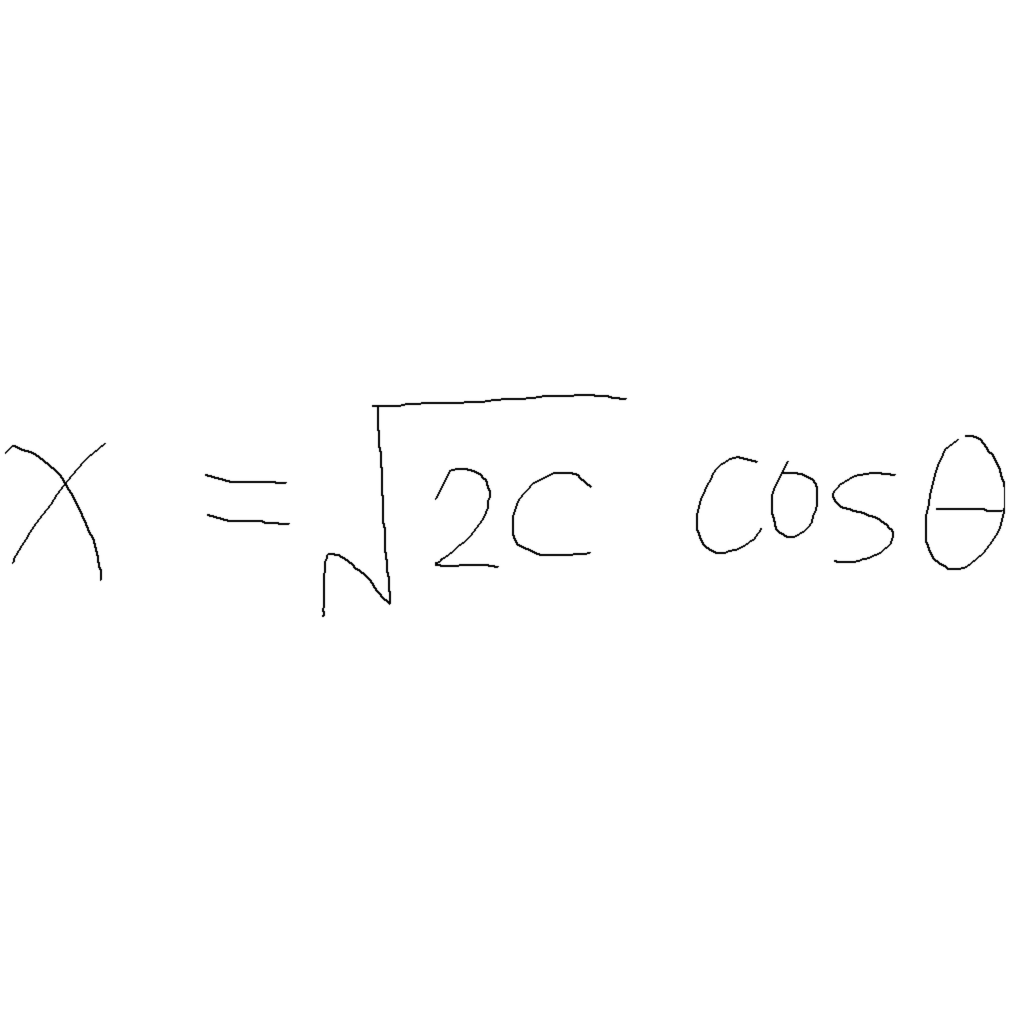 x = √2c cos θ